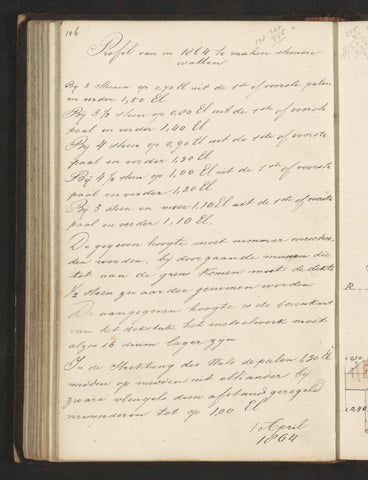 106
Profil van in 1864 te maken steenen
wallen
Bij 3 steenen op 0,70 El uit de 1ste of voorste palen
en verder 1,50 El
Bij 3 1/2 steen op 0,80 El uit de 1ste of voorste
paal en verder 1,40 El
Bij 4 steen op 0,90 El uit de 1ste of voorste
paal en verder 1,30 El
Bij 4 1/2 steen op 1,00 El uit de 1ste of voorste
paal en verder 1,20 El
Bij 5 steen en meer 1,10 El uit de 1ste of voorste
paal en verder 1,10 El.
De gegeven hoogte moet nimmer overschre
den worden, bij doorgaande muuren die
tot aan de grens komen moet de dikte
1/2 steen zwaarder genomen worden
De aangegeven hoogte is de bovenkant
van het dekstuk, het metselwerk moet
alzoo 16 duim lager zyn
In de Strekking des Wals de palen 1,30 El
midden op midden uit elkander bij
zware vleugels dien afstand geregeld
verminderen tot op 1,00 El
1 April
1864
R